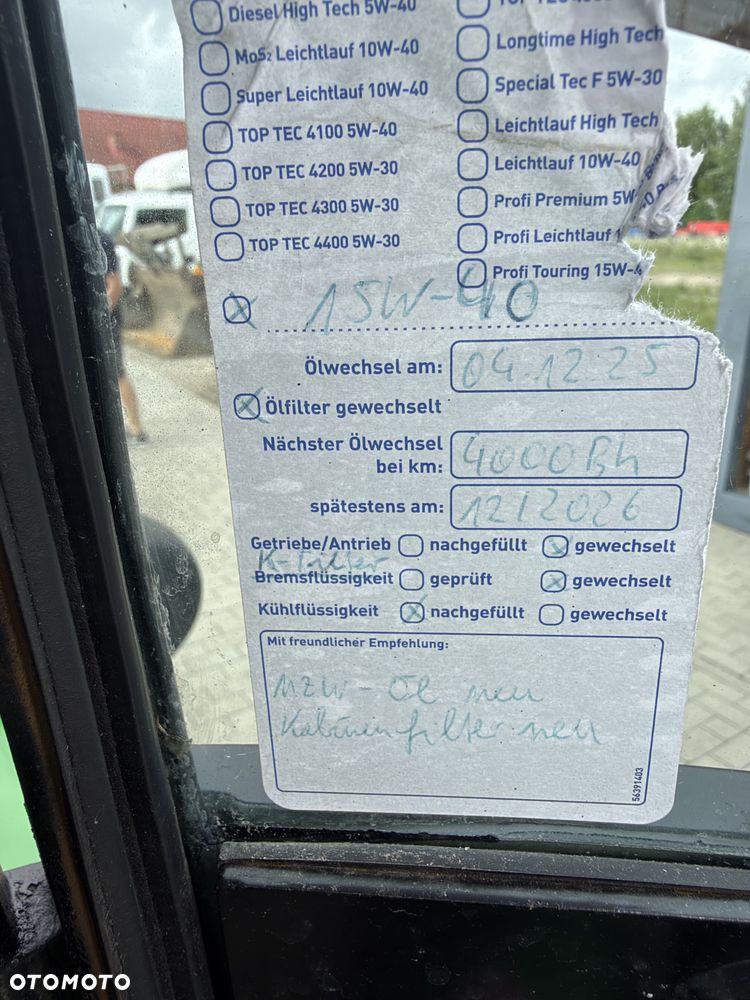 Diesel High Tech 5W-40
MoS₂ Leichtlauf 10W-40
Super Leichtlauf 10W-40
TOP TEC 4100 5W-40
TOP TEC 4200 5W-30
TOP TEC 4300 5W-30
TOP TEC 4400 5W-30
TOP TEC
Longtime High Tech
Special Tec F 5W-30
Leichtlauf High Tech
Leichtlauf 10W-40
Profi Premium 5W
Profi Leichtlauf 1
Profi Touring 15W-4
15W-40
Ölwechsel am: 04.12.25
Ölfilter gewechselt
Nächster Ölwechsel
bei km: 4000Bh
spätestens am: 12/2026
Getriebe/Antrieb nachgefüllt gewechselt
K-Filter
Bremsflüssigkeit geprüft gewechselt
Kühlflüssigkeit nachgefüllt gewechselt
Mit freundlicher Empfehlung:
HZW-Öl neu
Kabinenfilter neu
56391403
OTOMOTO